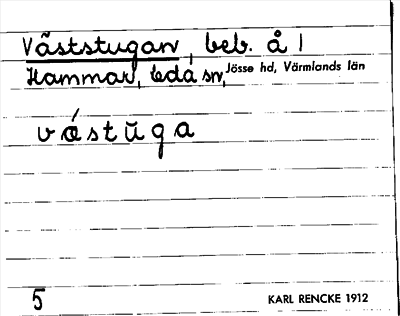 Väststugan, beb. å 1
Hammar, Eda sn, Jösse hd, Värmlands län
vǽstŭga
5
KARL RENCKE 1912